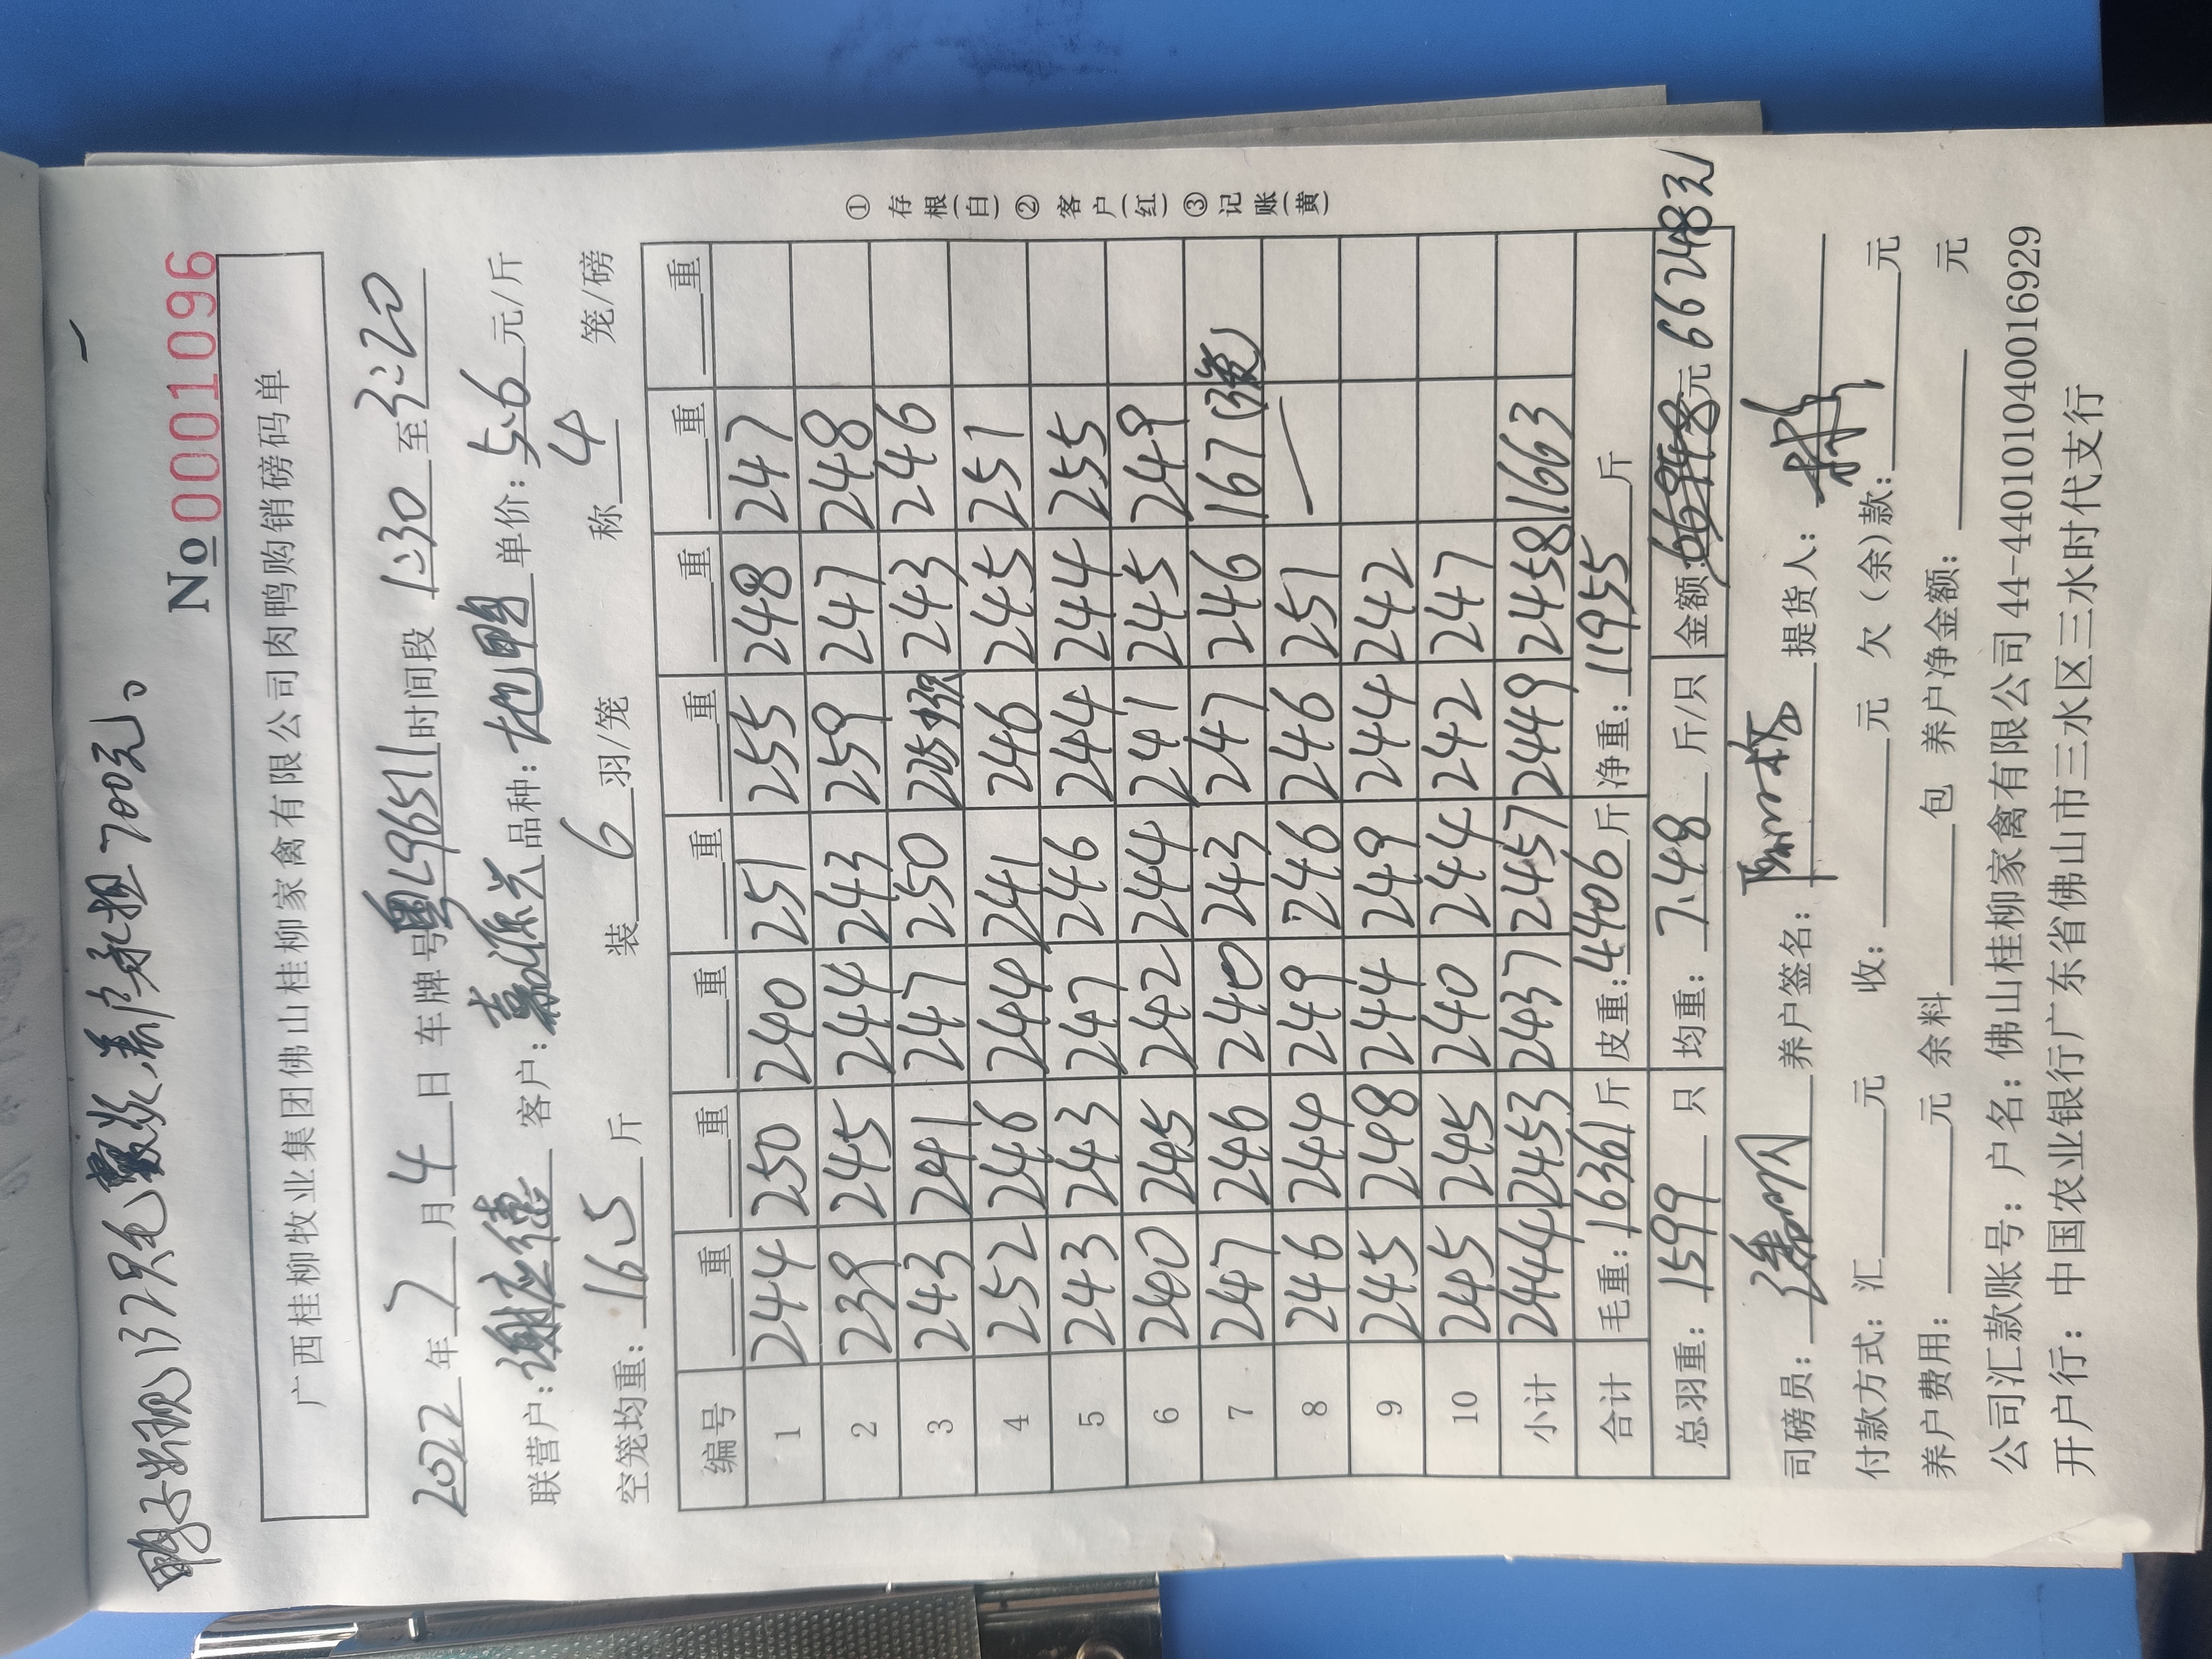 鸭子出现137只毛囊炎，养户承担700元。
No 0001096
广西桂柳牧业集团佛山桂柳家禽有限公司肉鸭购销磅码单
2022年7月4日 车牌号 粤L96511 时间段 1:30 至 3:20
联营户：谢应德 客户：嘉源兴 品种：地鸭 单价：5.6 元/斤
空笼均重：16.5 斤 装 6 羽/笼 称 4 笼/磅
编号 重 重 重 重 重 重 重 重
1 244 250 240 251 255 248 247
2 239 245 244 243 259 247 248
3 243 241 247 250 225 243 246
4 252 246 244 241 246 245 251
5 243 243 247 246 244 244 255
6 240 245 242 244 241 245 249
7 247 246 240 243 247 246 167(3笼)
8 246 244 249 246 246 251 —
9 245 248 244 249 244 242
10 245 245 240 244 242 247
小计 2444 2453 2437 2457 2449 2458 1663
合计 毛重：16361斤 皮重：4406斤 净重：11955 斤
总羽重：1599 只 均重：7.48 斤/只 金额： 元 66248元
司磅员： 养户签名： 提货人：
付款方式：汇 元 收： 元 欠（余）款： 元
养户费用： 元 余料 包 养户净金额： 元
公司汇款账号：户名：佛山桂柳家禽有限公司 44-440101040016929
开户行：中国农业银行广东省佛山市三水区三水时代支行
①存根(白)②客户(红)③记账(黄)